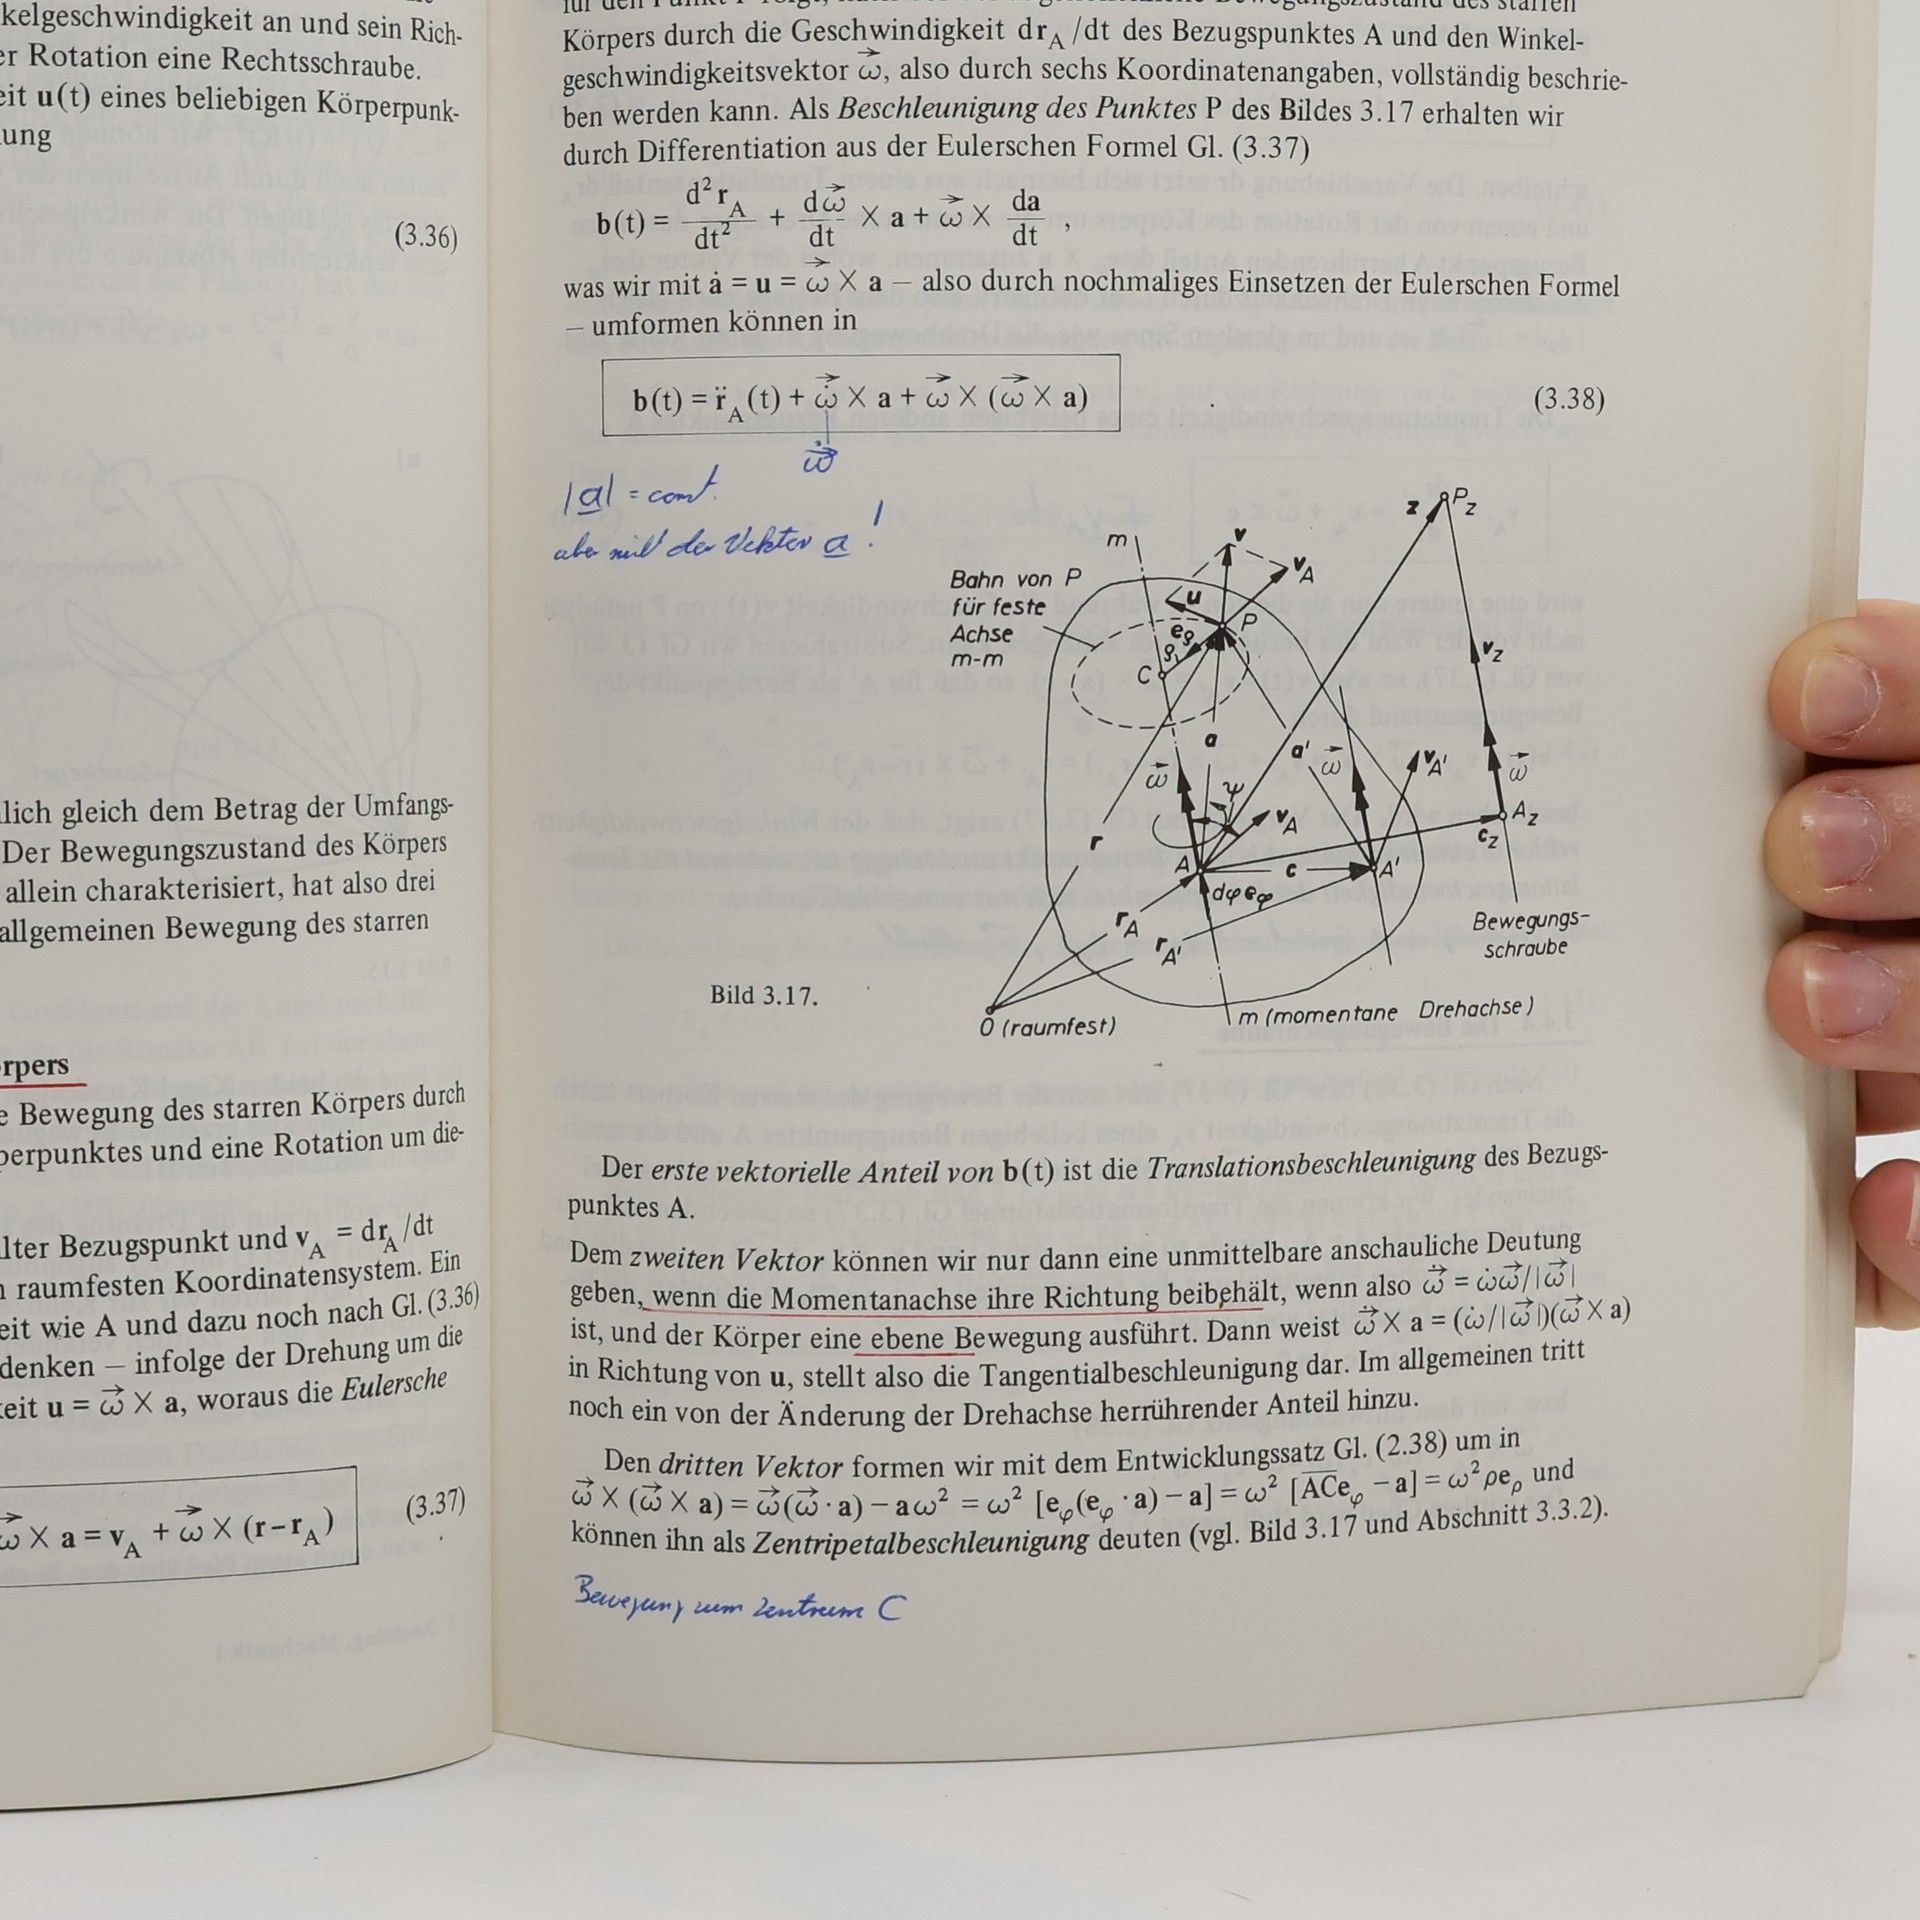 kelgeschwindigkeit an und sein Rich-
er Rotation eine Rechtsschraube.
eit u(t) eines beliebigen Körperpunk-
ung
(3.36)
lich gleich dem Betrag der Umfangs-
Der Bewegungszustand des Körpers
allein charakterisiert, hat also drei
allgemeinen Bewegung des starren
rpers
e Bewegung des starren Körpers durch
perpunktes und eine Rotation um die-
lter Bezugspunkt und v_A = dr_A/dt
n raumfesten Koordinatensystem. Ein
eit wie A und dazu noch nach Gl. (3.36)
denken – infolge der Drehung um die
keit u = ω⃗ × a, woraus die Eulersche
ω⃗ × a = v_A + ω⃗ × (r – r_A) (3.37)
Körpers durch die Geschwindigkeit dr_A/dt des Bezugspunktes A und den Winkel-
geschwindigkeitsvektor ω⃗, also durch sechs Koordinatenangaben, vollständig beschrie-
ben werden kann. Als Beschleunigung des Punktes P des Bildes 3.17 erhalten wir
durch Differentiation aus der Eulerschen Formel Gl. (3.37)
b(t) = d²r_A/dt² + dω⃗/dt × a + ω⃗ × da/dt ,
was wir mit ȧ = u = ω⃗ × a – also durch nochmaliges Einsetzen der Eulerschen Formel
– umformen können in
b(t) = r̈_A(t) + ω⃗̇ × a + ω⃗ × (ω⃗ × a) (3.38)
ω⃗̇
|a| = const.
aber nicht der Vektor a !
Bahn von P
für feste
Achse
m-m
m
z
P_z
v
v_A
u
e_ρ
ρ
P
C
v_z
a
a'
ω⃗
ω⃗
v_A'
ω⃗
ψ
v_A
A_z
c_z
r
A
c
A'
dφ e_φ
r_A
r_A'
Bewegungs-
schraube
Bild 3.17.
0 (raumfest)
m (momentane Drehachse)
Der erste vektorielle Anteil von b(t) ist die Translationsbeschleunigung des Bezugs-
punktes A.
Dem zweiten Vektor können wir nur dann eine unmittelbare anschauliche Deutung
geben, wenn die Momentanachse ihre Richtung beibehält, wenn also ω⃗̇ = ω̇ω⃗/|ω⃗|
ist, und der Körper eine ebene Bewegung ausführt. Dann weist ω⃗̇ × a = (ω̇/|ω⃗|)(ω⃗ × a)
in Richtung von u, stellt also die Tangentialbeschleunigung dar. Im allgemeinen tritt
noch ein von der Änderung der Drehachse herrührender Anteil hinzu.
Den dritten Vektor formen wir mit dem Entwicklungssatz Gl. (2.38) um in
ω⃗ × (ω⃗ × a) = ω⃗(ω⃗ · a) – aω² = ω² [e_φ(e_φ · a) – a] = ω² [A̅C̅e_φ – a] = ω²ρe_ρ und
können ihn als Zentripetalbeschleunigung deuten (vgl. Bild 3.17 und Abschnitt 3.3.2).
Bewegung zum Zentrum C